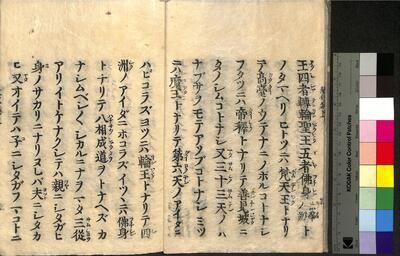 王四者轉輪聖王五者佛身云ト
ノタマヘリヒトツニハ梵天王トナリ
テ高臺ノウテナニノボルコトナシ
フタツニハ帝釋トナリテ善見城ニ
タノシムコトナシ又三十三天ノハ
ナブサノモテアソブコトナシミツ
ニハ魔王トナリテ第六天ノアイダニ
ハビコラズヨツニハ輪王トナリテ四
洲ノアイダニホコラズイツヽニハ佛身
トナリテ八相成道ヲトナヘズカ
ナシムベシ〱シカルニナヲマタ三從
アリイトケナクシテハ親ニシタガヒ
身ノサカリニナリヌレバ夫ニシタカ
ヒ又オイテハ子ニシタガフコトニ
KODAK Color Control Patches